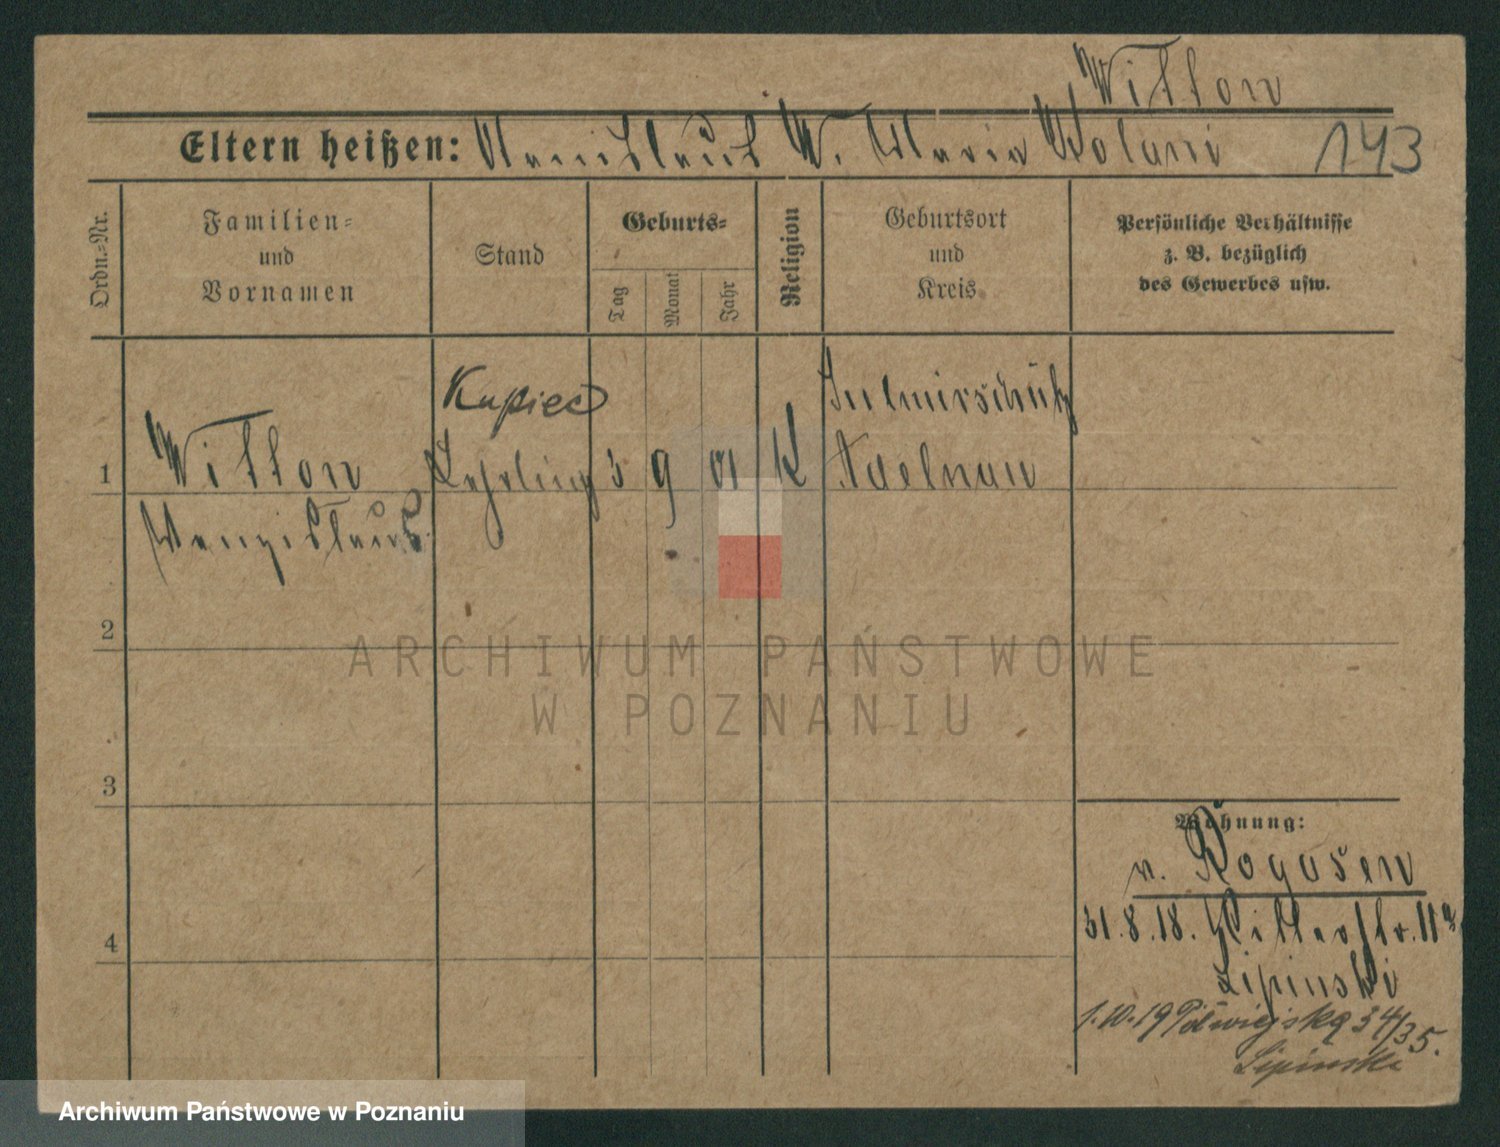 Witton
Eltern heißen: Stanislaus W. Maria Wolani 143
Ordn.-Nr.
Familien-
und
Vornamen
Stand
Geburts-
Tag
Monat
Jahr
Religion
Geburtsort
und
Kreis
Persönliche Verhältnisse
z. B. bezüglich
des Gewerbes usw.
Kupiec
Sulmirschütz
1 Witton Lehrling 3 9 01 K Adelnau
Wenzislaus
2
3
4
Wohnung:
v. Rogasen
31.8.18. 11
Lipinski
1.10.19 Półwiejska 34/35.
Lipinski
ARCHIWUM PAŃSTWOWE
W POZNANIU
Archiwum Państwowe w Poznaniu